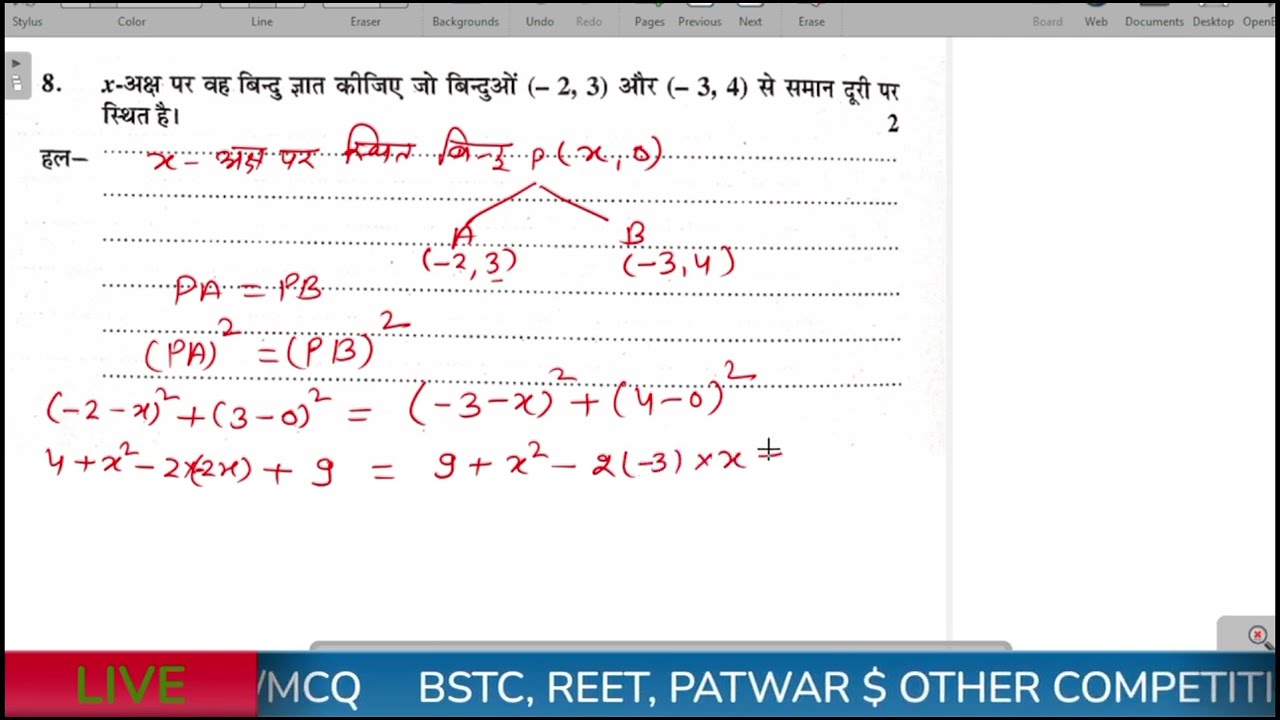 Stylus Color Line Eraser Backgrounds Undo Redo Pages Previous Next Erase Board Web Documents Desktop OpenB
8. x-अक्ष पर वह बिन्दु ज्ञात कीजिए जो बिन्दुओं (– 2, 3) और (– 3, 4) से समान दूरी पर
स्थित है। 2
हल– x - अक्ष पर स्थित बिन्दु P(x, 0)
A B
(-2, 3) (-3, 4)
PA = PB
(PA)² = (PB)²
(-2-x)² + (3-0)² = (-3-x)² + (4-0)²
4 + x² - 2×(-2x) + 9 = 9 + x² - 2(-3) × x =
LIVE /MCQ BSTC, REET, PATWAR $ OTHER COMPETITI